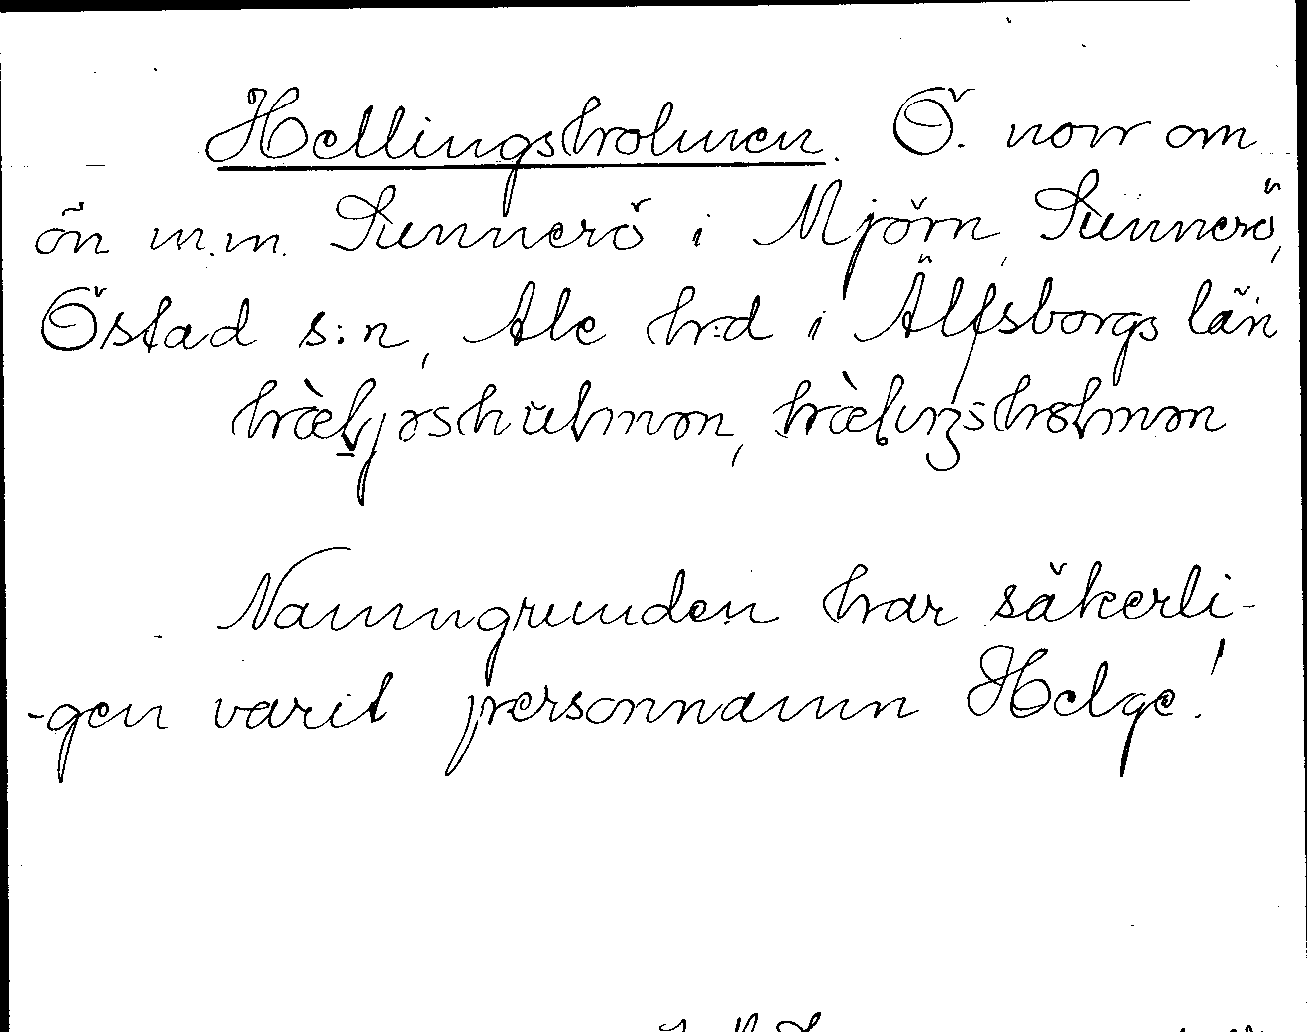 Hellingsholmen. Ö. norr om
ön m.m. Sunnerö i Mjörn, Sunnerö,
Östad s:n, Ale hd i Älfsborgs län
hæljəshulmən, hæliŋsholmən
Namngrunden har säkerli-
-gen varit personnamn Helge!